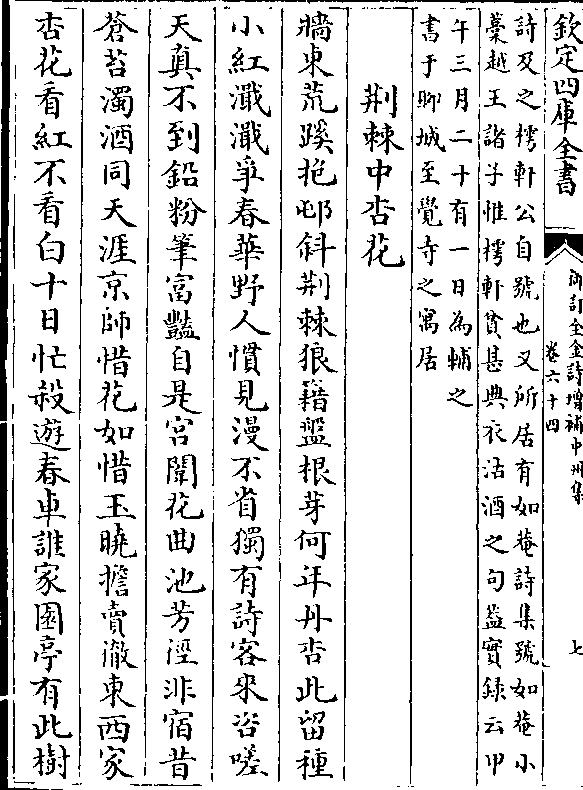 欽定四庫全書
御訂全金詩增補中州集
卷六十四
七
詩及之樗軒公自號也又所居有如菴詩集號如菴小
藁越王諸子惟樗軒貧甚典衣沽酒之句益實錄云甲
午三月二十有一日為輔之
書于聊城至覺寺之寓居
荆棘中杏花
牆東荒蹊抱邨斜荆棘狼籍盤根芽何年丹杏此留種
小紅濈濈爭春華野人慣見漫不省獨有詩客來咨嗟
天真不到鉛粉筆富豔自是宮闈花曲池芳徑非宿昔
蒼苔濁酒同天涯京師惜花如惜玉曉擔賣徹東西家
杏花看紅不看白十日忙殺遊春車誰家園亭有此樹